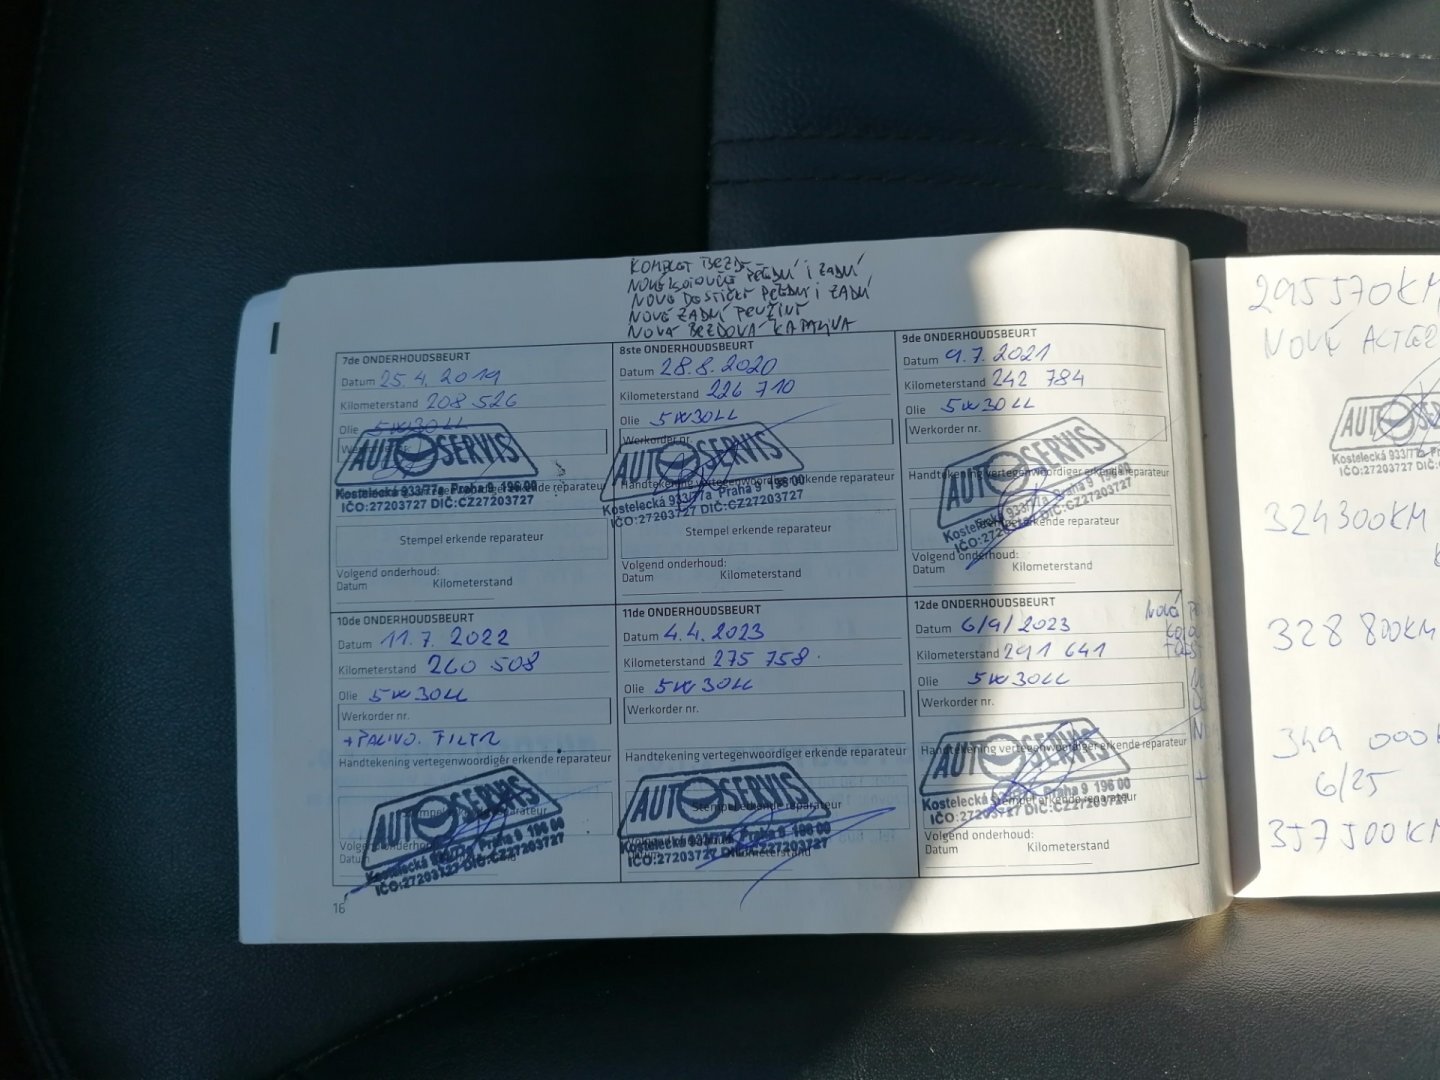 KOMPLET BRZDY
NOVÉ KOTOUČE PŘEDNÍ I ZADNÍ
NOVÉ DESTIČKY PŘEDNÍ I ZADNÍ
NOVÉ ZADNÍ PRUŽINY
NOVÁ BRZDOVÁ KAPALINA
7de ONDERHOUDSBEURT
Datum 25.4.2019
Kilometerstand 208 526
Olie 5W30LL
AUTOSERVIS
Kostelecká 933/77a Praha 9 196 00
IČO:27203727 DIČ:CZ27203727
Stempel erkende reparateur
Volgend onderhoud:
Datum Kilometerstand
8ste ONDERHOUDSBEURT
Datum 28.8.2020
Kilometerstand 226 710
Olie 5W30LL
Werkorder nr.
AUTOSERVIS
Handtekening vertegenwoordiger erkende reparateur
Kostelecká 933/77a Praha 9 196 00
IČO:27203727 DIČ:CZ27203727
Stempel erkende reparateur
Volgend onderhoud:
Datum Kilometerstand
9de ONDERHOUDSBEURT
Datum 9.7.2021
Kilometerstand 242 784
Olie 5W30LL
Werkorder nr.
AUTOSERVIS
Handtekening vertegenwoordiger erkende reparateur
Kostelecká 933/77a Praha 9 196 00
Stempel erkende reparateur
Volgend onderhoud:
Datum Kilometerstand
10de ONDERHOUDSBEURT
Datum 11.7.2022
Kilometerstand 260 508
Olie 5W30LL
Werkorder nr.
+PALIVO. FILTR
Handtekening vertegenwoordiger erkende reparateur
AUTOSERVIS
Kostelecká 933/77a Praha 9 196 00
IČO:27203727 DIČ:CZ27203727
16
11de ONDERHOUDSBEURT
Datum 4.4.2023
Kilometerstand 275 758
Olie 5W30LL
Werkorder nr.
Handtekening vertegenwoordiger erkende reparateur
AUTOSERVIS
Stempel erkende reparateur
Kostelecká 933/77a Praha 9 196 00
IČO:27203727 DIČ:CZ27203727
12de ONDERHOUDSBEURT
Datum 6/9/2023
Kilometerstand 291 641
Olie 5W30LL
Werkorder nr.
AUTOSERVIS
Handtekening vertegenwoordiger erkende reparateur
Kostelecká 933/77a Praha 9 196 00
IČO:27203727 DIČ:CZ27203727
Stempel erkende reparateur
Volgend onderhoud:
Datum Kilometerstand
NOVÁ
295 570KM
NOVÝ
AUTOSERVIS
Kostelecká 933/77a
IČO:27203727 DIČ:
324300KM
328 800KM
349 000
6/25
357500KM